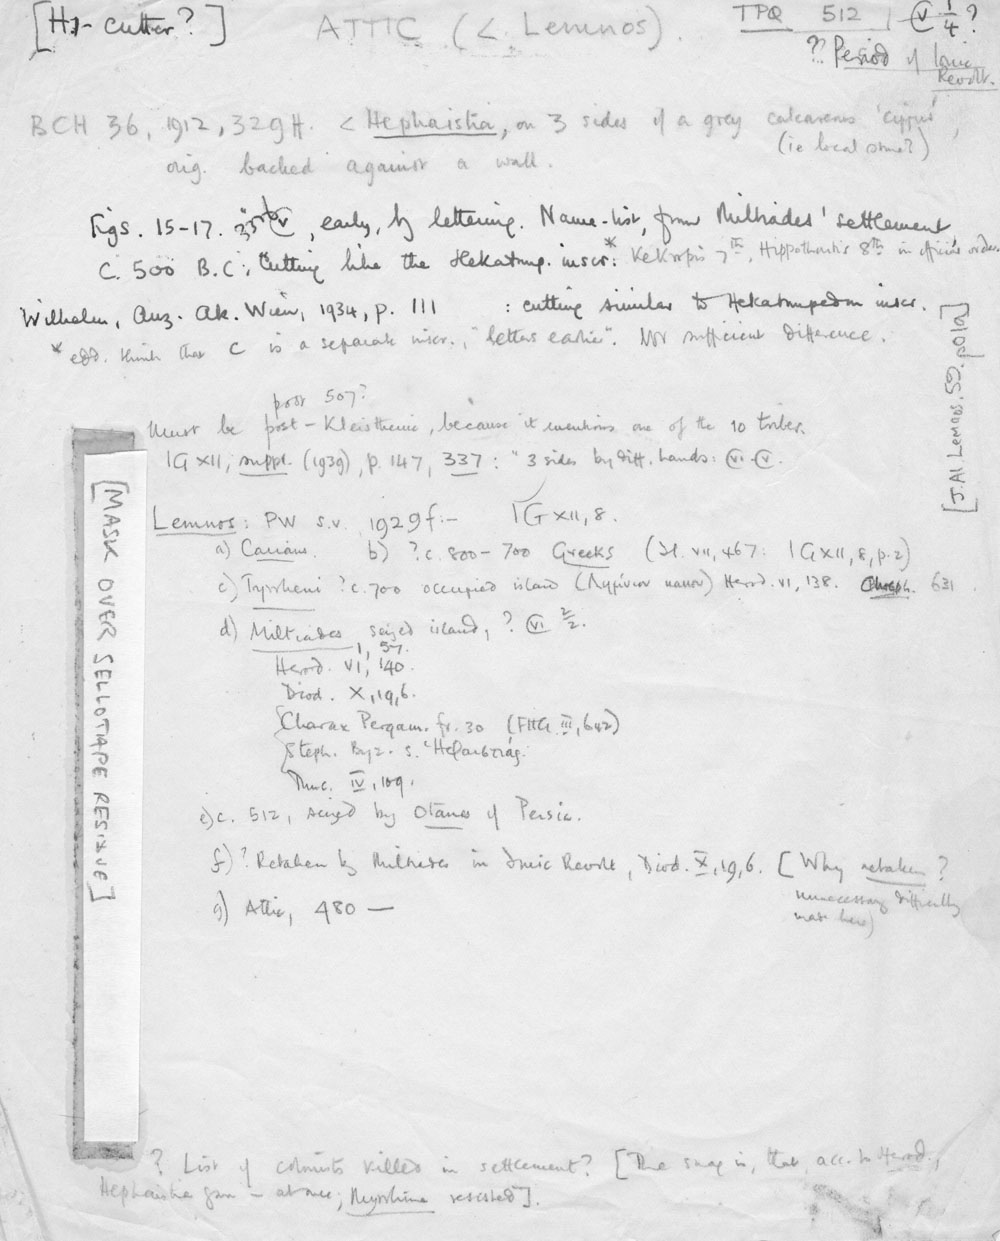 [H1-cutter?] ATTIC (< Lemnos). TPQ 512 | Ⓥ 1/4 ?
?? Period of Ionic
Revolt.
BCH 36, 1912, 329ff. < Hephaistia, on 3 sides of a grey calcareous 'cippus',
(ie local stone?)
orig. backed against a wall.
Figs. 15-17. Ⓥ, early, by lettering. Name-list, from Miltiades' settlement,
c. 500 B.C.; Cutting like the Hekatomp. inscr.* Kekropis 7th, Hippothontis 8th in official order.
Wilhelm, Anz. Ak. Wien, 1934, p. 111 : cutting similar to Hekatompedon inscr.
* edd. think that C is a separate inscr., "letters earlier". Not sufficient difference.
[J. Al. Lemnos. 59. p01a]
post 507?
Must be post-Kleisthenic, because it mentions one of the 10 tribes.
IG XII, suppl. (1939), p. 147, 337 : "3 sides by diff. hands: ⓥⓘ-Ⓥ.
[MASK OVER SELLOTAPE RESIDUE]
Lemnos: PW s.v. 1929f:- IG XII, 8.
a) Carians. b) ? c. 800-700 Greeks (Il. VII, 467: IG XII, 8, p. 2)
c) Tyrrheni ? c. 700 occupied island Herod. VI, 138. 631
d) Miltiades seized island, ? ⓥⓘ 2/2.
1, 57.
Herod. VI, 140.
Diod. X, 19, 6.
Charax Pergam. fr. 30 (FHG III, 642)
Steph. Byz. s. Ἡφαιστιάς.
Thuc. IV, 109.
e) c. 512, seized by Otanes of Persia.
f) ? Retaken by Miltiades in Ionic Revolt, Diod. X, 19, 6. [Why retaken?
unnecessary difficulty
made here)
g) Attic, 480 —
? List of colonists killed in settlement? [The snag is, that, acc. to Herod.,
Hephaistia gave in at once; Myrrhine resisted].